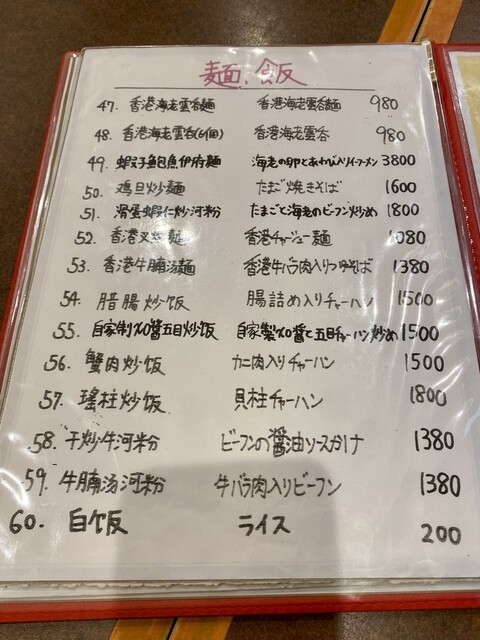 麺.飯
47. 香港海老雲呑麺 香港海老雲呑麺 980
48. 香港海老雲呑(6個) 香港海老雲呑 980
49. 蝦子鮑魚伊府麺 海老の卵とあわび入りイーフーメン 3800
50. 鸡旦炒麺 たまご焼きそば 1600
51. 滑蛋蝦仁炒河粉 たまごと海老のビーフン炒め 1800
52. 香港叉焼麺 香港チャーシュー麺 1080
53. 香港牛腩汤麺 香港牛バラ肉入りつゆそば 1380
54. 腊腸炒饭 腸詰め入りチャーハン 1500
55. 自家制XO醤五目炒饭 自家製XO醤と五目チャーハン炒め 1500
56. 蟹肉炒饭 カニ肉入りチャーハン 1500
57. 瑤柱炒饭 貝柱チャーハン 1800
58. 干炒牛河粉 ビーフンの醤油ソースかけ 1380
59. 牛腩汤河粉 牛バラ肉入りビーフン 1380
60. 白饭 ライス 200